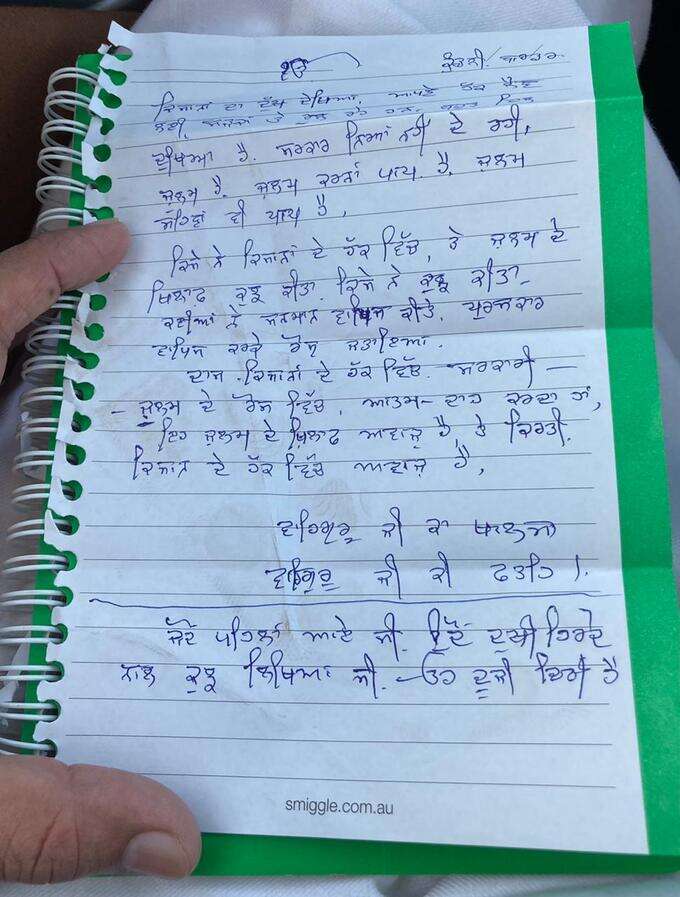 ੴ
ਕੁੰਡਲੀ ਬਾਰਡਰ
ਕਿਸਾਨਾਂ ਦਾ ਦੁੱਖ ਦੇਖਿਆ, ਆਪਣੇ ਹੱਕ ਲੈਣ
ਲਈ, ਸੜਕਾਂ ਤੇ ਰੁਲ ਰਹੇ ਹਨ, ਬਹੁਤ ਦਿਲ
ਦੁਖਿਆ ਹੈ. ਸਰਕਾਰ ਨਿਆਂ ਨਹੀਂ ਦੇ ਰਹੀ,
ਜ਼ੁਲਮ ਹੈ. ਜ਼ੁਲਮ ਕਰਨਾਂ ਪਾਪ ਹੈ, ਜ਼ੁਲਮ
ਸਹਿਣਾਂ ਵੀ ਪਾਪ ਹੈ,
ਕਿਸੇ ਨੇ ਕਿਸਾਨਾਂ ਦੇ ਹੱਕ ਵਿੱਚ, ਤੇ ਜ਼ੁਲਮ ਦੇ
ਖਿਲਾਫ ਕੁਝ ਕੀਤਾ. ਕਿਸੇ ਨੇ ਕੁਝ ਕੀਤਾ
ਕਈਆਂ ਨੇ ਸਨਮਾਨ ਵਾਪਿਸ ਕੀਤੇ, ਪੁਰਸਕਾਰ
ਵਾਪਿਸ ਕਰਕੇ ਰੋਸ ਜਤਾਇਆ.
ਦਾਸ ਕਿਸਾਨਾਂ ਦੇ ਹੱਕ ਵਿੱਚ. ਸਰਕਾਰੀ —
- ਜ਼ੁਲਮ ਦੇ ਰੋਸ ਵਿੱਚ, ਆਤਮ-ਦਾਹ ਕਰਦਾ ਹਾਂ,
ਇਹ ਜ਼ੁਲਮ ਦੇ ਖ਼ਿਲਾਫ ਆਵਾਜ਼ ਹੈ, ਤੇ ਕਿਰਤੀ
ਕਿਸਾਨ ਦੇ ਹੱਕ ਵਿੱਚ ਆਵਾਜ਼ ਹੈ,
ਵਾਹਿਗੁਰੂ ਜੀ ਕਾ ਖਾਲਸਾ
ਵਾਹਿਗੁਰੂ ਜੀ ਕੀ ਫਤਹਿ।.
ਜਦੋਂ ਪਹਿਲਾਂ ਆਏ ਸੀ. ਉਦੋਂ ਦੁਖੀ ਹਿਰਦੇ
ਨਾਲ ਕੁਝ ਲਿਖਿਆ ਸੀ. ਉਹ ਦੂਜੀ ਵਿੱਚ ਹੈ
smiggle.com.au